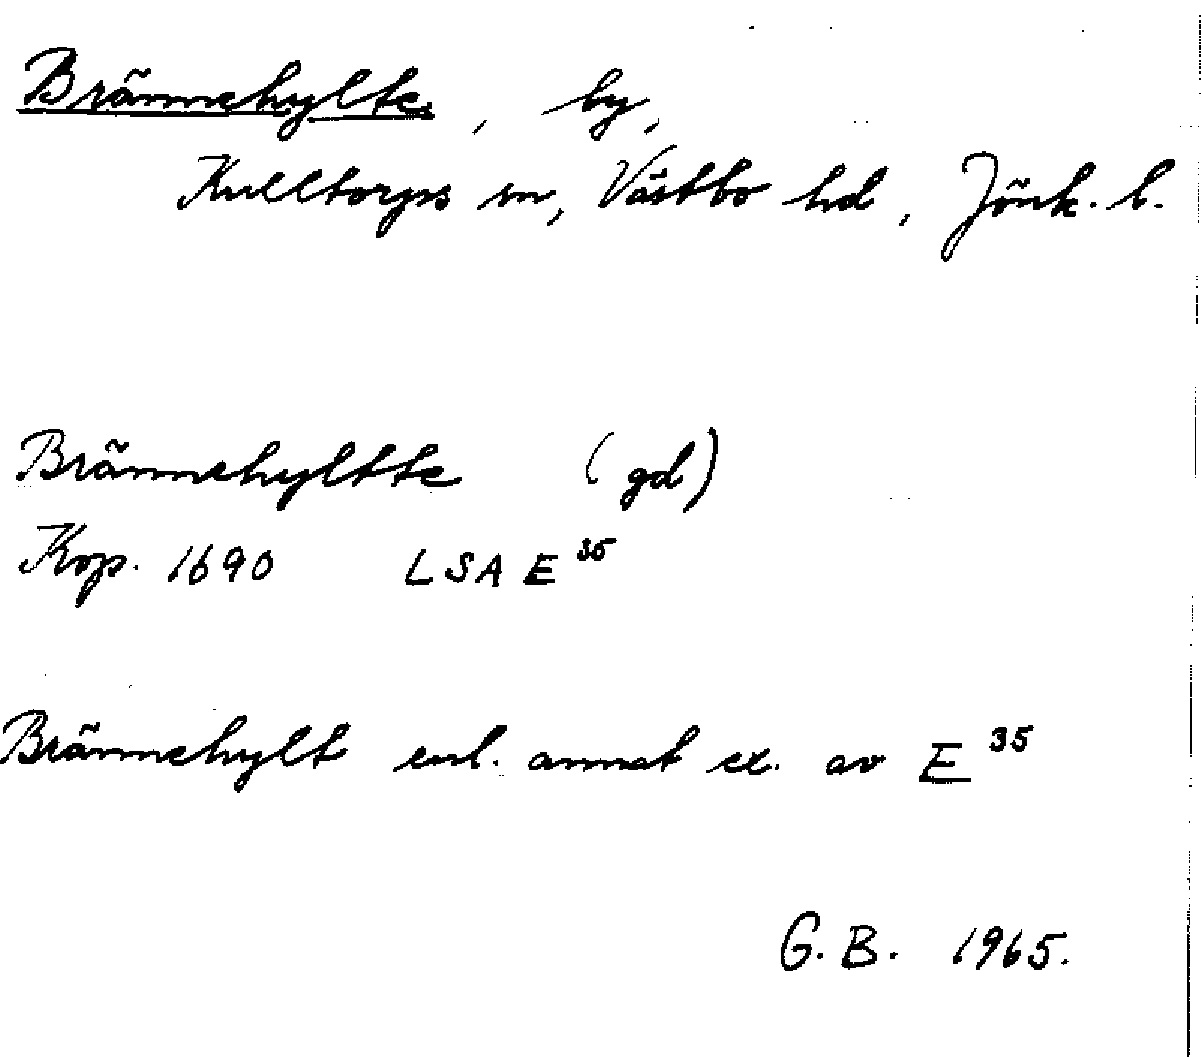 Brännehylte, by,
Kulltorps sn, Västbo hd, Jönk. l.
Brännehyltte (gd)
Kop. 1690 LSA E 35
Brännehylt enl. annat ex. av E 35
G. B. 1965.